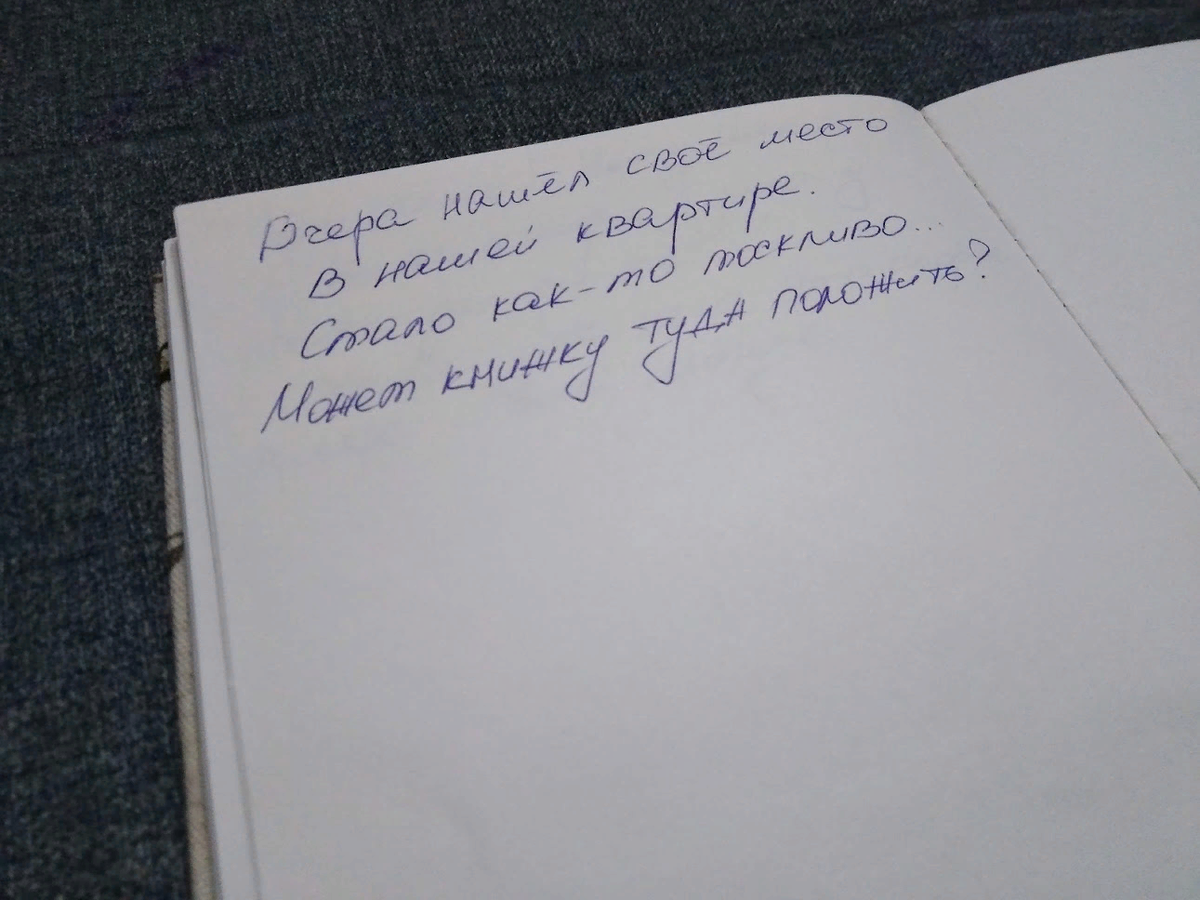 Вчера нашёл своё место
в нашей квартире.
Стало как-то тоскливо...
Может книжку туда положить?